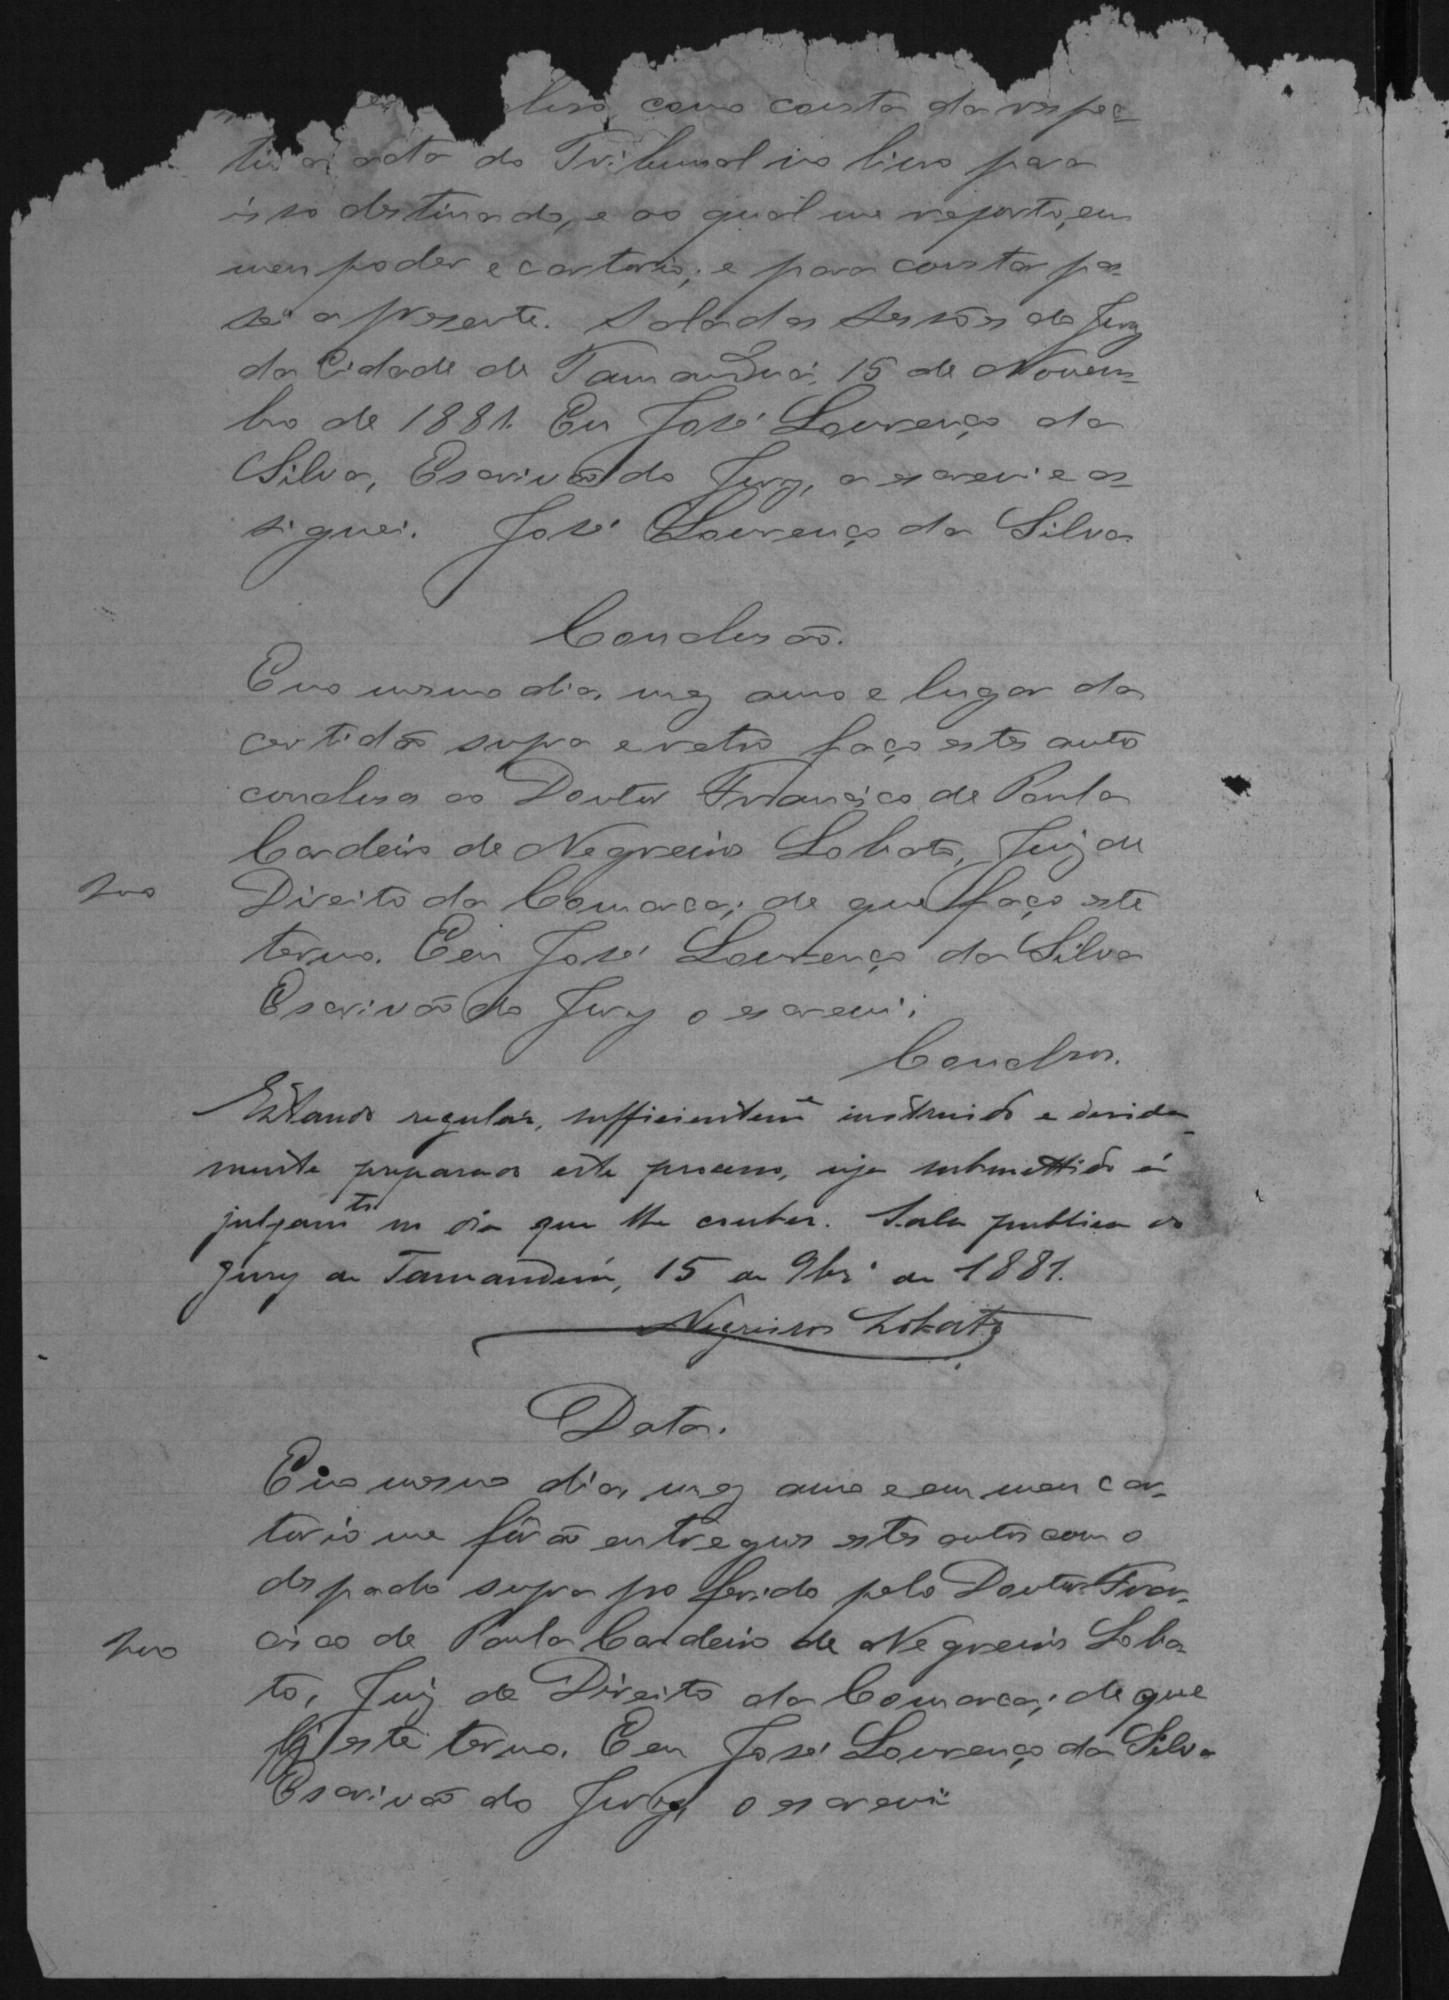 como consta da respec-
tiva acta do Tribunal no livro para
isso destinado, e ao qual me reporto, em
meu poder e cartorio; e para constar pas-
sei a presente. Sala das Sessões do Jury
da Cidade de Tamanduá, 15 de Novem-
bro de 1881. Eu José Lourenço da
Silva, Escrivão do Jury, a escrevi e as-
signei. José Lourenço da Silva
Conclusão.
E no mesmo dia, mez anno e lugar da
certidão supra e retro faço estes autos
conclusos ao Doutor Francisco de Paula
Cordeiro de Negreiros Lobato, Juiz de
Direito da Comarca; de que faço este
termo. Eu José Lourenço da Silva
Escrivão do Jury o escrevi;
Conclsos.
Estando regular, sufficientemᵉ instruido e devida-
mente preparado este processo, seja submettido á
julgamᵗᵒ no dia que lhe couber. Sala publica do
Jury de Tamanduá, 15 de 9brᵒ de 1881.
Negreiros Lobato
Data.
E no mesmo dia, mez anno e em meu car-
torio me fôrão entregues estes autos com o
despacho supra proferido pelo Doutor Fran-
cisco de Paula Cordeiro de Negreiros Loba-
to, Juiz de Direito da Comarca; de que
fiz este termo. Eu José Lourenço da Silva
Escrivão do Jury, o escrevi